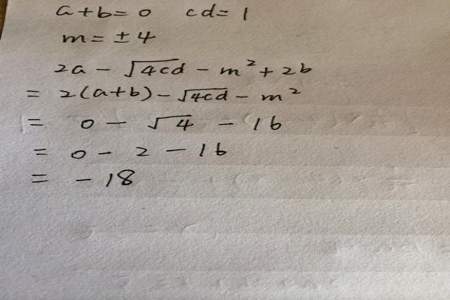 a+b=0 cd=1
m=±4
2a-√4cd-m²+2b
= 2(a+b)-√4cd-m²
= 0-√4-16
= 0-2-16
= -18